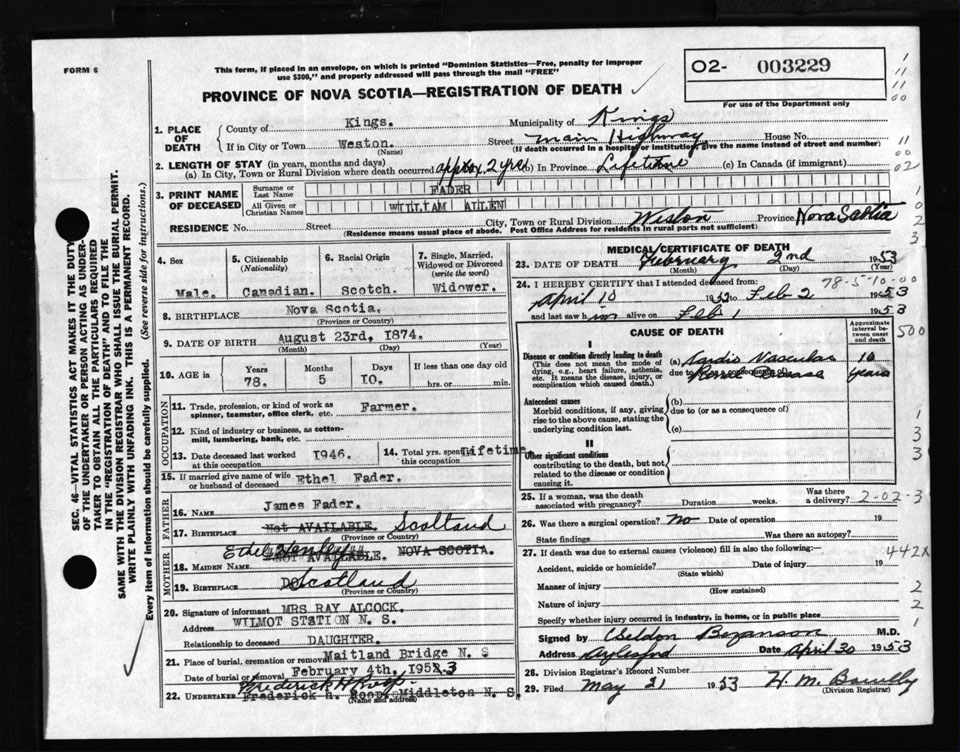 FORM 6
This form, if placed in an envelope, on which is printed "Dominion Statistics—Free, penalty for improper
use $300," and properly addressed will pass through the mail "FREE"
PROVINCE OF NOVA SCOTIA—REGISTRATION OF DEATH
O2- 003229
For use of the Department only
1. PLACE OF DEATH
County of Kings. Municipality of Kings
If in City or Town Weston. (Name) Street Main Highway House No.
(If death occurred in a hospital or institution, give the name instead of street and number)
2. LENGTH OF STAY (in years, months and days)
(a) In City, Town or Rural Division where death occurred approx. 2 yrs (b) In Province Lifetime (c) In Canada (if immigrant)
3. PRINT NAME OF DECEASED
Surname or Last Name FADER
All Given or Christian Names WILLIAM ALLEN
RESIDENCE No. Street City, Town or Rural Division Weston Province Nova Scotia
(Residence means usual place of abode. Post Office Address for residents in rural parts not sufficient)
SEC. 46—VITAL STATISTICS ACT MAKES IT THE DUTY
OF THE UNDERTAKER OR PERSON ACTING AS UNDER-
TAKER TO OBTAIN ALL THE PARTICULARS REQUIRED
IN THE "REGISTRATION OF DEATH" AND TO FILE THE
SAME WITH THE DIVISION REGISTRAR WHO SHALL ISSUE THE BURIAL PERMIT.
WRITE PLAINLY WITH UNFADING INK. THIS IS A PERMANENT RECORD.
Every item of information should be carefully supplied. (See reverse side for instructions.)
4. Sex Male.
5. Citizenship (Nationality) Canadian.
6. Racial Origin Scotch.
7. Single, Married, Widowed or Divorced (write the word) Widower.
8. BIRTHPLACE Nova Scotia. (Province or Country)
9. DATE OF BIRTH August 23rd, 1874. (Month) (Day) (Year)
10. AGE in Years 78. Months 5 Days 10. If less than one day old hrs. or min.
OCCUPATION
11. Trade, profession, or kind of work as spinner, teamster, office clerk, etc. Farmer.
12. Kind of industry or business, as cotton-mill, lumbering, bank, etc.
13. Date deceased last worked at this occupation 1946.
14. Total yrs. spent in this occupation Lifetime
15. If married give name of wife or husband of deceased Ethel Fader.
FATHER
16. NAME James Fader.
17. BIRTHPLACE Not AVAILABLE. Scotland (Province or Country)
MOTHER
18. MAIDEN NAME NOT AVAILABLE. NOVA SCOTIA. Ethel Henley
19. BIRTHPLACE Scotland (Province or Country)
20. Signature of informant MRS RAY ALCOCK.
Address WILMOT STATION N. S.
Relationship to deceased DAUGHTER.
21. Place of burial, cremation or removal Maitland Bridge N. S
Date of burial or removal February 4th, 1953
22. UNDERTAKER Frederick H. Middleton N. S. (Name and address)
MEDICAL CERTIFICATE OF DEATH
23. DATE OF DEATH February 2nd 1953
(Month) (Day) (Year)
24. I HEREBY CERTIFY that I attended deceased from: 78-5-10-00
April 10 1952 to Feb 2 1953
and last saw him alive on Feb 1 1953
CAUSE OF DEATH
Approximate interval between onset and death
I
Disease or condition directly leading to death
(This does not mean the mode of dying, e.g., heart failure, asthenia, etc. It means the disease, injury, or complication which caused death.)
(a) Cardio Vascular
due to Renal Disease 10 years
Antecedent causes
Morbid conditions, if any, giving rise to the above cause, stating the underlying condition last.
(b)
due to (or as a consequence of)
(c)
II
Other significant conditions
contributing to the death, but not related to the disease or condition causing it.
25. If a woman, was the death associated with pregnancy? Duration weeks. Was there a delivery? 2-02-3
26. Was there surgical operation? No Date of operation 19
State findings Was there an autopsy?
27. If death was due to external causes (violence) fill in also the following:— 442X
Accident, suicide or homicide? (State which) Date of injury 19
Manner of injury (How sustained)
Nature of injury
Specify whether injury occurred in industry, in home, or in public place
Signed by Weldon Bezanson M.D.
Address Aylesford Date April 30 1953
28. Division Registrar's Record Number
29. Filed May 21 1953 (Division Registrar)